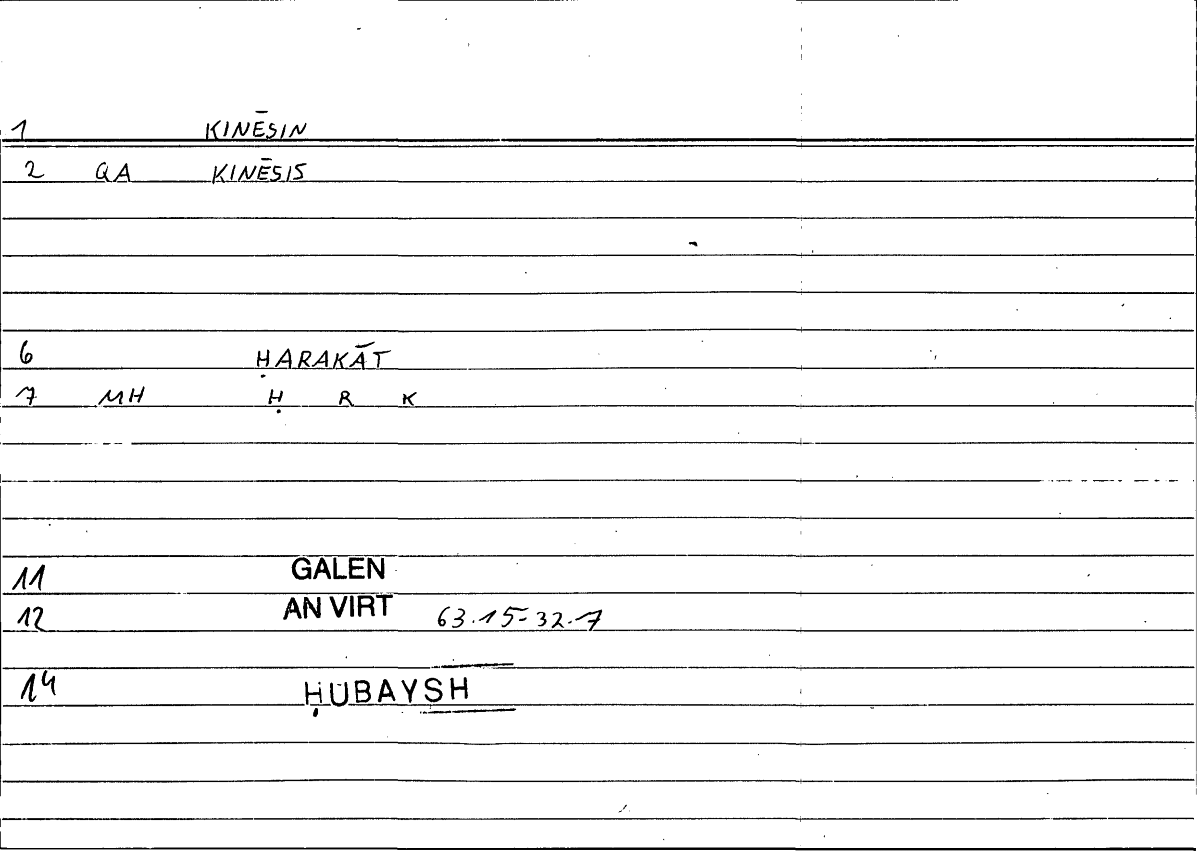 1 KINĒSIN
2 QA KINĒSIS
6 ḤARAKĀT
7 MH Ḥ R K
11 GALEN
12 AN VIRT 63.15-32.7
14 ḤUBAYSH